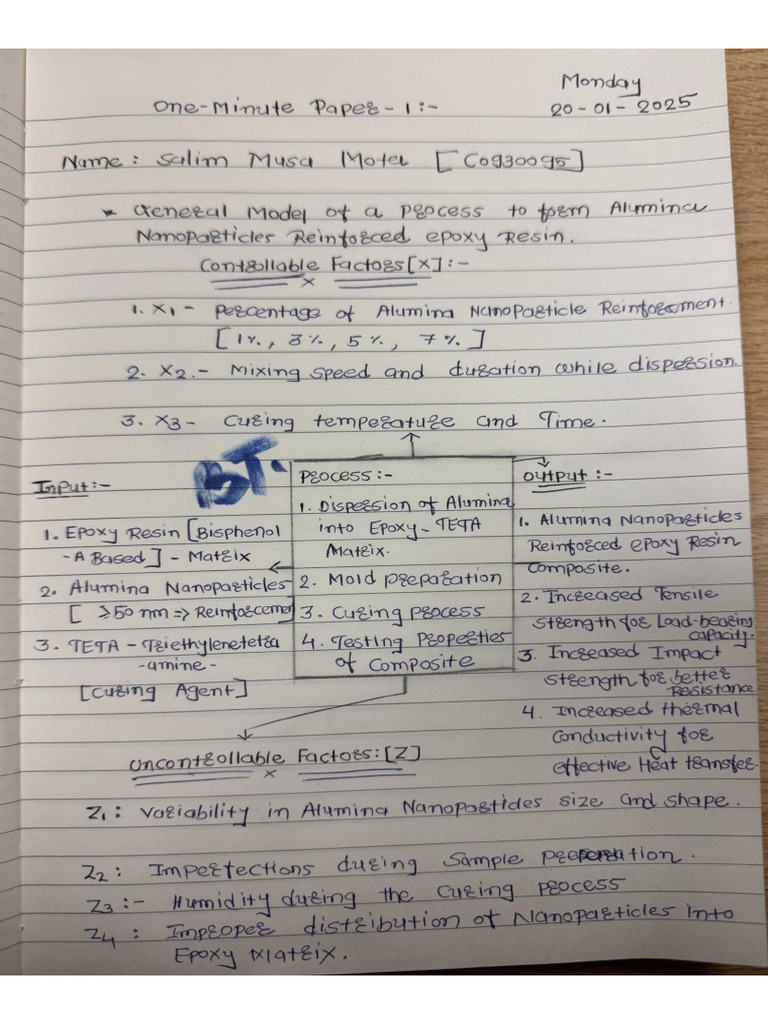 Monday
One-Minute Paper-1:-
20-01-2025
Name: Salim Musa Motei [C0930095]
* General Model of a process to form Alumina
Nanoparticles Reinforced epoxy Resin.
Controllable Factors[X]:-
x
1. X1 - Percentage of Alumina Nanoparticle Reinforcement.
[1%, 3%, 5%, 7%]
2. X2.- Mixing speed and duration while dispersion.
3. X3- Curing temperature and Time.
BT.
Input:-
1. Epoxy Resin [Bisphenol
-A Based] - Matrix
2. Alumina Nanoparticles
[ ≥50 nm => Reinforcemen
3. TETA - Triethylenetetra
-amine-
[Curing Agent]
Process:-
1. Dispersion of Alumina
into Epoxy-TETA
Matrix.
2. Mold preparation
3. Curing process
4. Testing Properties
of Composite
Output:-
1. Alumina Nanoparticles
Reinforced epoxy Resin
Composite.
2. Increased Tensile
strength for Load-bearing
capacity.
3. Increased Impact
strength for better
Resistance
4. Increased thermal
Conductivity for
effective Heat transfer.
Uncontrollable Factors:[Z]
x
Z1: Variability in Alumina Nanoparticles size and shape.
Z2: Imperfections during Sample preparation.
Z3:- Humidity during the Curing process
Z4: Improper distribution of Nanoparticles into
Epoxy Matrix.